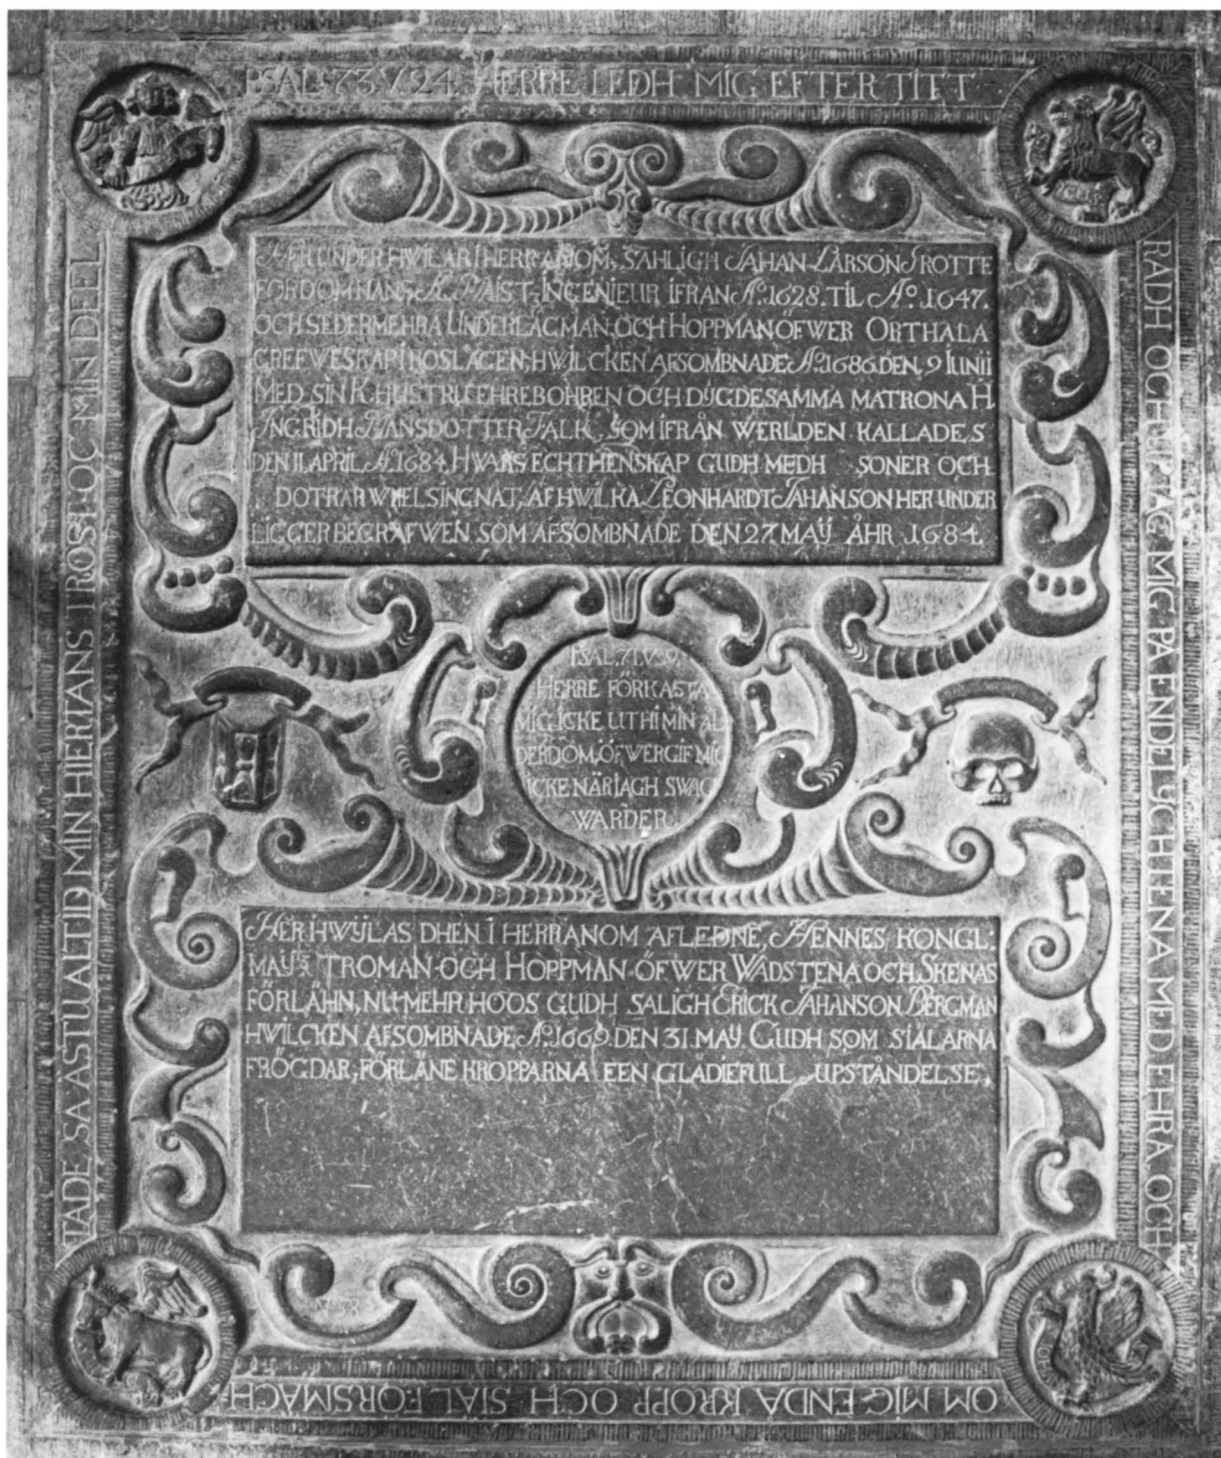 PSAL: 73. V. 24. HERRE LEDH MIG EFTER TITT
RÅDH OCH UPTAG MIG PÅ ENDELYCHTENA MED EHRA OCH
OM MIG ENDA KROPP OCH SIÄL FÖRSMÄCH-
TADE, SÅ ÄSTU ALTID MIN HIERTANS TRÖST, OC MIN DEEL
HÄR UNDER HWILAR I HERRANOM, SAHLIGH JAHAN LARSON TROTTE
FORDOM HANS K. MAIST: INGENIEUR IFRÅN Aº. 1628. TIL Aº. 1647.
OCH SEDERMEHRA UNDERLAGMAN OCH HOPPMAN ÖFWER ORTHALA
GREFWESKAP I ROSLAGEN, HWILCKEN AFSOMBNADE Aº. 1686. DEN 9 IUNII
MED SIN K. HUSTRU EHREBOHREN OCH DYGDESAMMA MATRONA H.
INGRIDH HANSDOTTER FALK, SOM IFRÅN WERLDEN KALLADES
DEN 11. APRIL Aº. 1684. HWARS ECHTHENSKAP GUDH MEDH SONER OCH
DOTRAR WÄEL SINGNAT, AF HWILKA LEONHARDT JAHANSON HER UNDER
LIGGER BEGRAFWEN SOM AFSOMBNADE DEN 27. MAY ÅHR 1684.
PSAL. 71. V. 9.
HERRE FÖRKASTA
MIG ICKE UTHI MIN ÅL
DERDOM, ÖFWERGIF MIG
ICKE NÄR IAGH SWAG
WARDER.
HER I HWYLAS DHEN I HERRANOM AFLEDNE, HENNES KONGL:
MAY:TZ TROMAN OCH HOPPMAN ÖFWER WADSTENA OCH SKENAS
FÖRLÄHN, NU MEHR HOOS GUDH SALIGH ERICK JAHANSON BERGMAN
HWILCKEN AFSOMBNADE Aº. 1669. DEN 31. MAY. GUDH SOM SIÄLARNA
FRÖGDAR, FÖRLÄNE KROPPARNA EEN GLÄDIEFULL UPSTÅNDELSE,